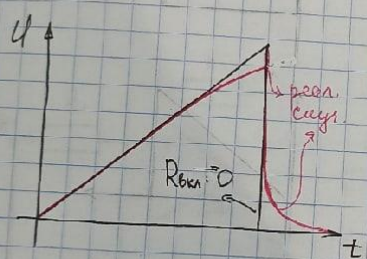 U
реал.
случ.
Rвкл.→0
t